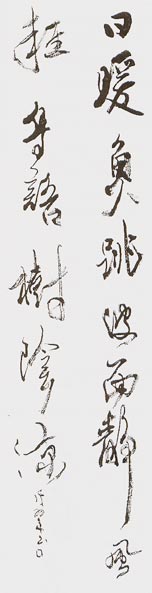 日暖魚跳波面靜風
輕鳥語樹陰涼